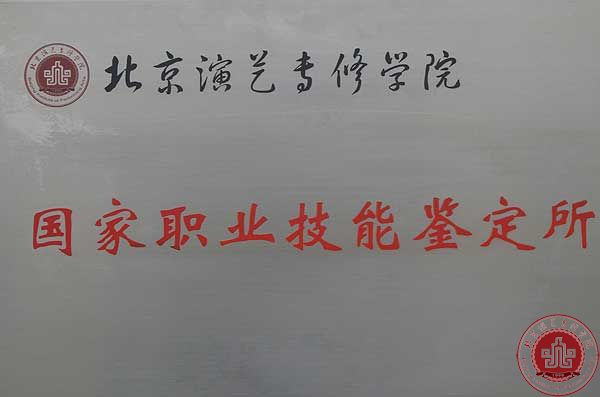 北京演艺专修学院
国家职业技能鉴定所